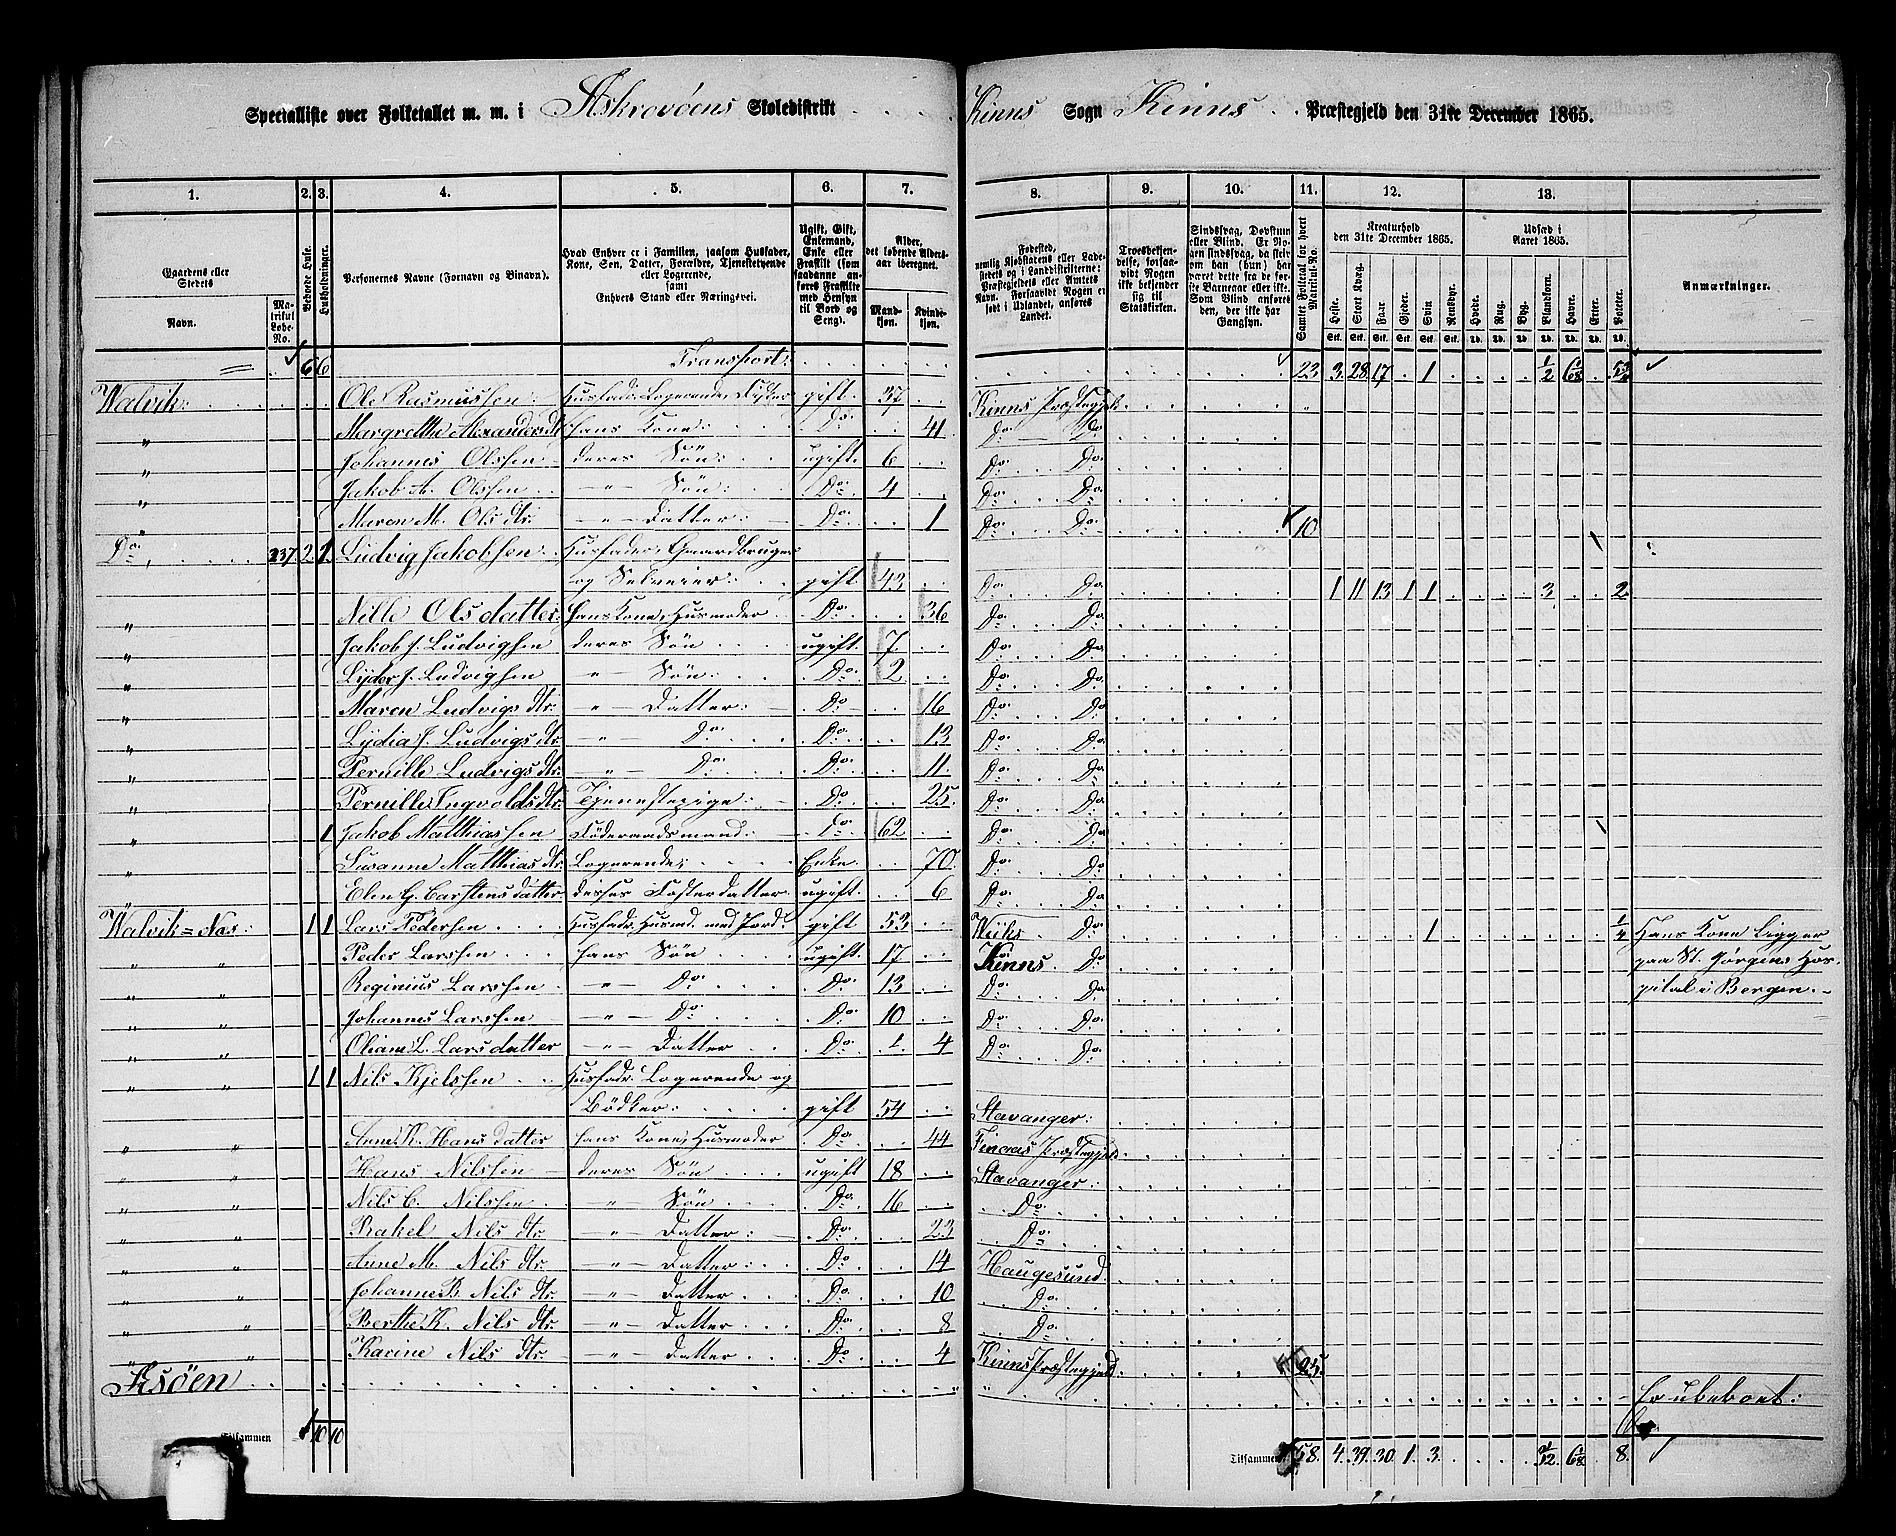 Specialliste over Folketallet m. m. i Askrovøens Skoledistrikt Kinns Sogn Kinns Præstegjeld den 31te December 1865.
1. 2. 3. 4. 5. 6. 7. 8. 9. 10. 11. 12. 13.
Gaardens eller Stedets Navn. Matrikul Løbe-No. Beboede Huse. Husholdninger. Personernes Navne (Fornavn og Binavn).
Hvad Enhver er i Familien, saasom Husfader, Kone, Søn, Datter, Forældre, Tjenestetyende eller Logerende, samt Enhvers Stand eller Næringsvei.
Ugift, Gift, Enkemand, Enke eller Fraskilt (som saadanne anføres Fraskilte med Hensyn til Bord og Seng).
Alder, det løbende Alders-aar iberegnet. Mandkjøn. Kvindekjøn.
Samlet Folketal for hvert Matricul-No.
Kreaturhold den 31te December 1865. Heste. Stort Kvæg. Faar. Gjeder. Svin. Rensdyr.
Udsæd i Aaret 1865. Hvede. Rug. Byg. Blandkorn. Havre. Erter. Poteter.
Anmærkninger.
6 6 Transport: 23 3 28 17 1 1/2
Walvik Ole Rasmussen Husfader Logerende, Fisker gift 37 Kinns Præstegjeld
" Margrethe Alexandersdtr hans Kone Do 41 Do Do
" Johannes Olssen deres Søn ugift 6 Do Do
" Jakob A. Olssen " Søn Do 4 Do Do
" Maren M. Olsdtr " Datter Do 1 Do Do 10
Do 237 2 1 Ludvig Jakobsen Husfader, Gaardbruger
og Selveier gift 43 Do Do 1 11 13 1 1 3 2
" Nille Olsdatter hans Kone, Husmoder Do 36 Do Do
" Jakob J. Ludvigsen deres Søn ugift 7 Do Do
" Lyder J. Ludvigsen " Søn Do 2 Do Do
" Maren Ludvigsdtr " Datter Do 16 Do Do
" Lydia J. Ludvigsdtr " Do Do 13 Do Do
" Pernille Ludvigsdtr " Do Do 11 Do Do
" Pernille Ingvoldsdtr Tjenestepige Do 25 Do Do
" 1 Jakob Matthiassen Föderaadsmand Do 62 Do Do
" Susanne Matthiasdtr Logerende Enke 70 Do Do
" Elen G. Carstensdatter deres Fosterdatter ugift 6 Do Do
Walvik=Næs 1 1 Lars Pedersen Husfader, Husmd med Jord gift 53 Wiiks Do 1 1/4 Hans Kone ligger
" " Peder Larssen hans Søn ugift 17 Kinns Do paa St. Jørgens Hos-
" " Reginius Larssen " Do Do 13 Do Do pital i Bergen.
" " Johannes Larssen " Do Do 10 Do Do
" " Oliane L. Larsdatter " Datter Do 4 Do Do
" " 1 1 Nils Kjelssen Husfadr. Logerende og
Bödker gift 54 Stavanger
" " Anne K. Hansdatter hans Kone, Husmoder Do 44 Præstegjeld
" " Hans Nilssen deres Søn ugift 18 Stavanger
" " Nils C. Nilssen " Søn Do 16 Do
" " Rakel Nilsdtr " Datter Do 23 Do
" " Anne M. Nilsdtr " Datter Do 14 Haugesund
" " Johanne B. Nilsdtr " Datter Do 10 Do
" " Berthe K. Nilsdtr " Datter Do 8 Do
" " Karine Nilsdtr " Datter Do 4 Kinns Præstegjeld 25
er ubeboet
Tilsammen 10 10 Tilsammen 58 4 39 30 1 3 8